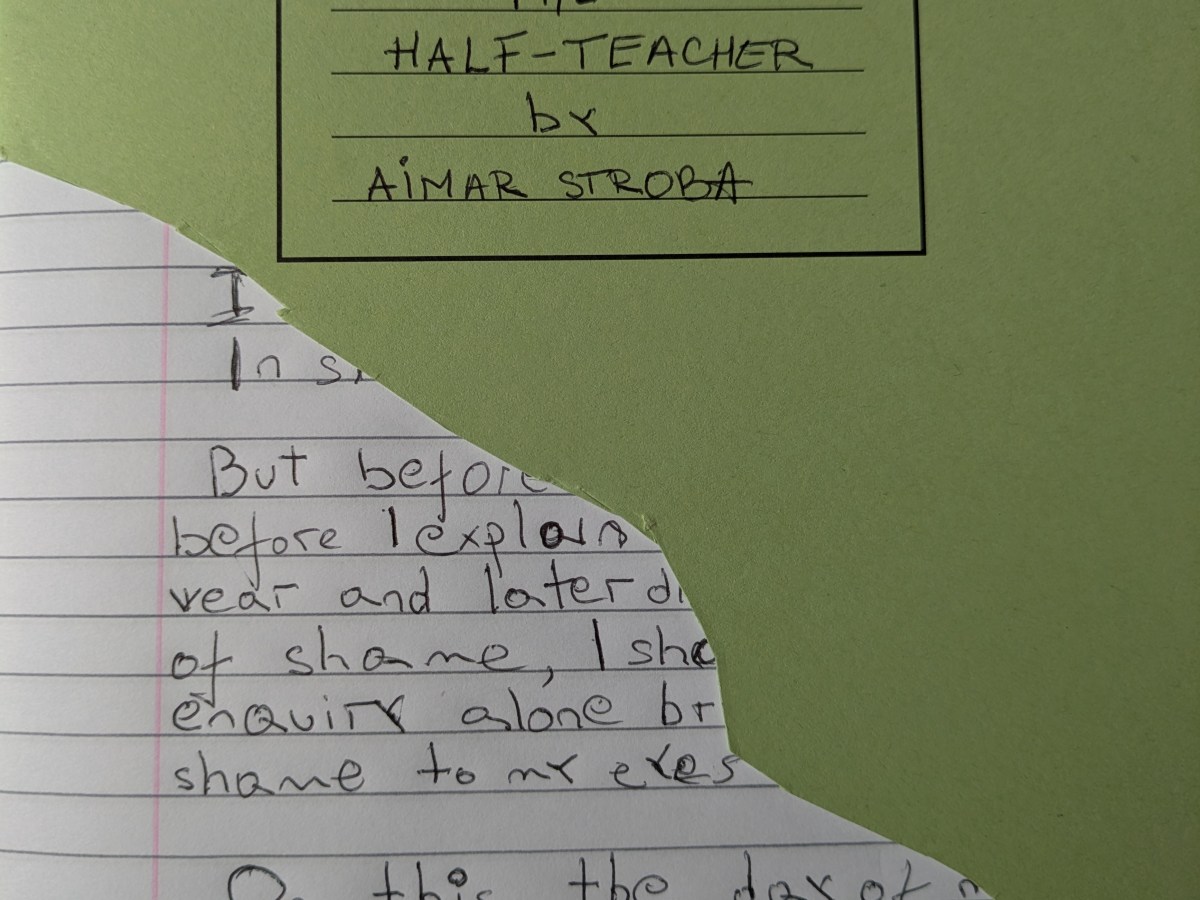 HALF-TEACHER
by
AIMAR STROBA
I
In
But before
before I explain
year and later
of shame, I
enquiry alone
shame to my eyes
this the day of